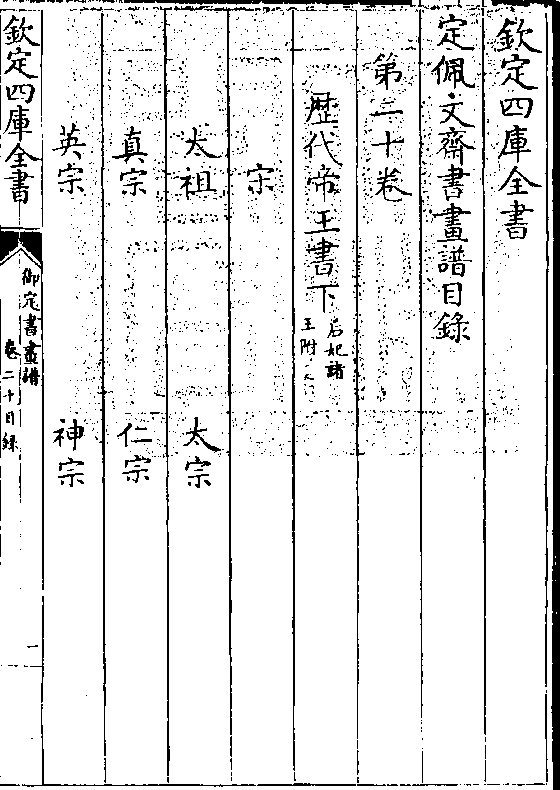 欽定四庫全書
定佩文齋書畫譜目錄
第二十卷
歴代帝王書下
后妃諸
王附
宋
太祖 太宗
真宗 仁宗
英宗 神宗
欽定四庫全書
御定書畫譜
卷二十目録
一